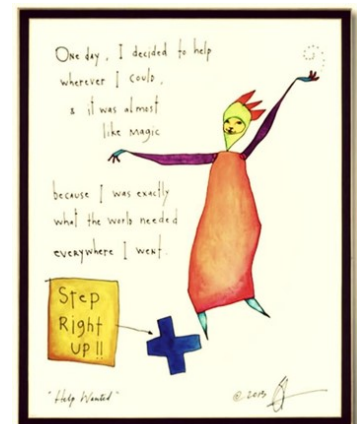 One day, I decided to help
wherever I could,
& it was almost
like magic
because I was exactly
what the world needed
everywhere I went.
Step
Right
Up!!
"Help Wanted"
© 2013